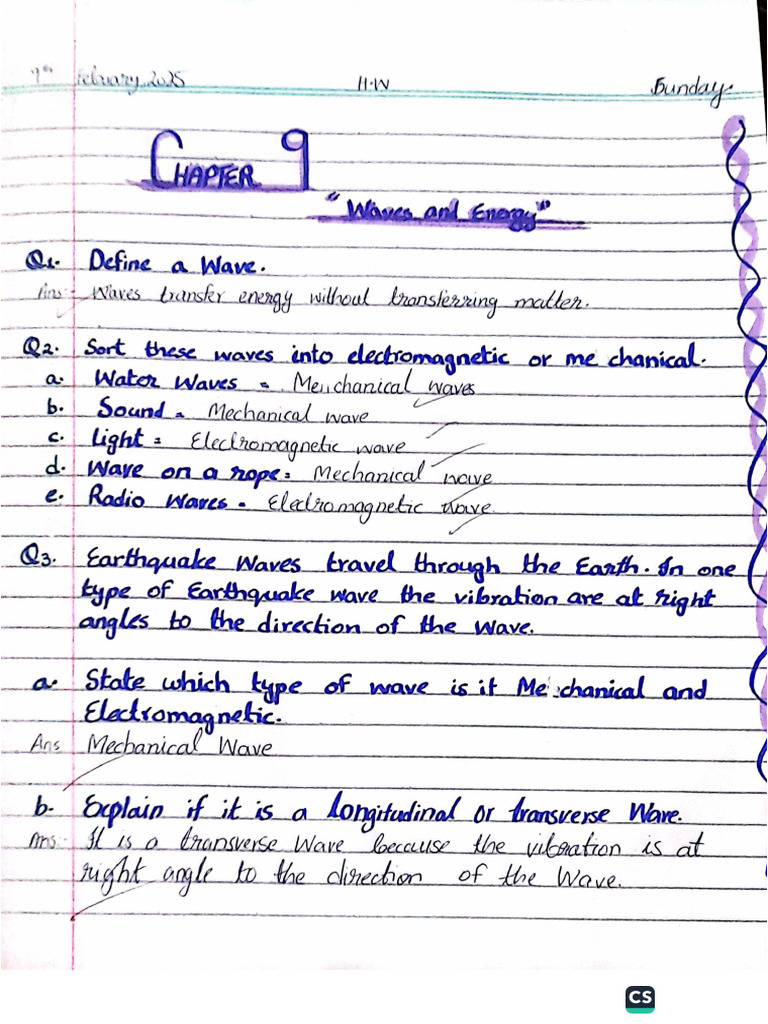 9th February, 2025 H.W Sunday
CHAPTER 9
"Waves and Energy"
Q1. Define a Wave.
Ans:- Waves transfer energy without transferring matter.
Q2. Sort these waves into electromagnetic or me chanical.
a. Water Waves = Mechanical waves
b. Sound = Mechanical wave
c. Light = Electromagnetic wave
d. Wave on a rope = Mechanical wave
e. Radio Waves = Electromagnetic wave
Q3. Earthquake Waves travel through the Earth. In one
type of Earthquake wave the vibration are at right
angles to the direction of the wave.
a. State which type of wave is it Me chanical and
Electromagnetic.
Ans Mechanical Wave
b. Explain if it is a longitudinal or transverse Wave.
Ans:- It is a transverse Wave because the vibration is at
right angle to the direction of the Wave.
CS